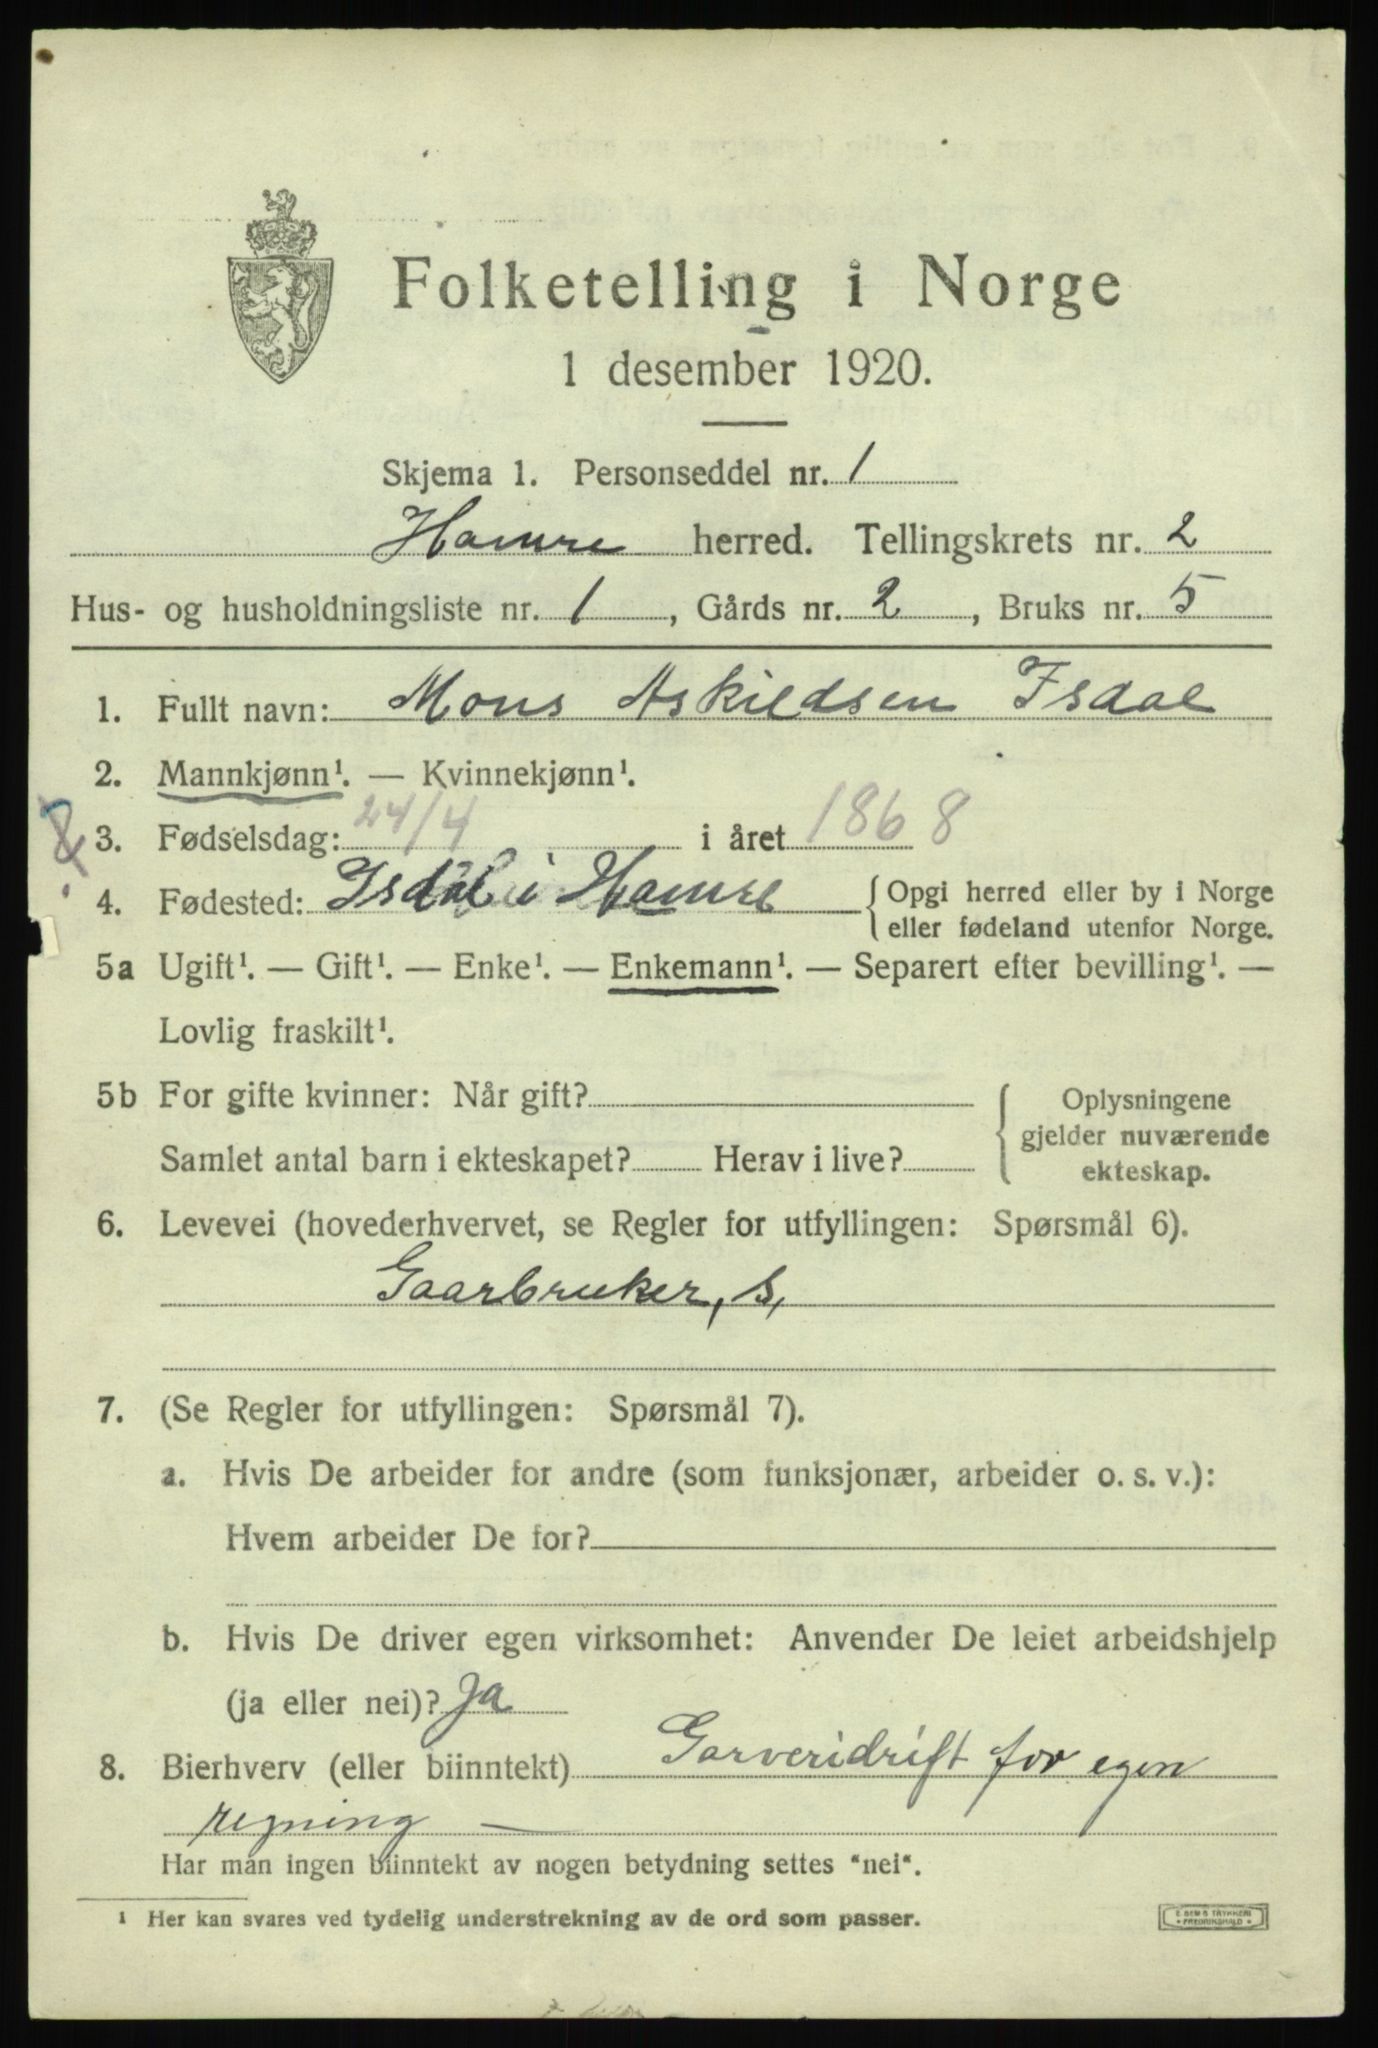 Folketelling i Norge
1 desember 1920.
Skjema 1. Personseddel nr. 1
Hamre herred. Tellingskrets nr. 2
Hus- og husholdningsliste nr. 1, Gårds nr. 2, Bruks nr. 5
1. Fullt navn: Mons Askildsen Isdal
2. Mannkjønn¹. — Kvinnekjønn¹.
3. Fødselsdag: 24/4 i året 1868
4. Fødested: Isdal i Hamre { Opgi herred eller by i Norge
eller fødeland utenfor Norge.
5a Ugift¹. — Gift¹. — Enke¹. — Enkemann¹. — Separert efter bevilling¹. —
Lovlig fraskilt¹.
5b For gifte kvinner: Når gift? { Oplysningene
gjelder nuværende
Samlet antal barn i ekteskapet? Herav i live? ekteskap.
6. Levevei (hovederhvervet, se Regler for utfyllingen: Spørsmål 6).
Gaarbruker, s,
7. (Se Regler for utfyllingen: Spørsmål 7).
a. Hvis De arbeider for andre (som funksjonær, arbeider o. s. v.):
Hvem arbeider De for?
b. Hvis De driver egen virksomhet: Anvender De leiet arbeidshjelp
(ja eller nei)? Ja
8. Bierhverv (eller biinntekt) Garveridrift for egen
regning —
Har man ingen biinntekt av nogen betydning settes "nei".
¹ Her kan svares ved tydelig understrekning av de ord som passer.
E. SEM S TRYKKERI
FREDRIKSHALD